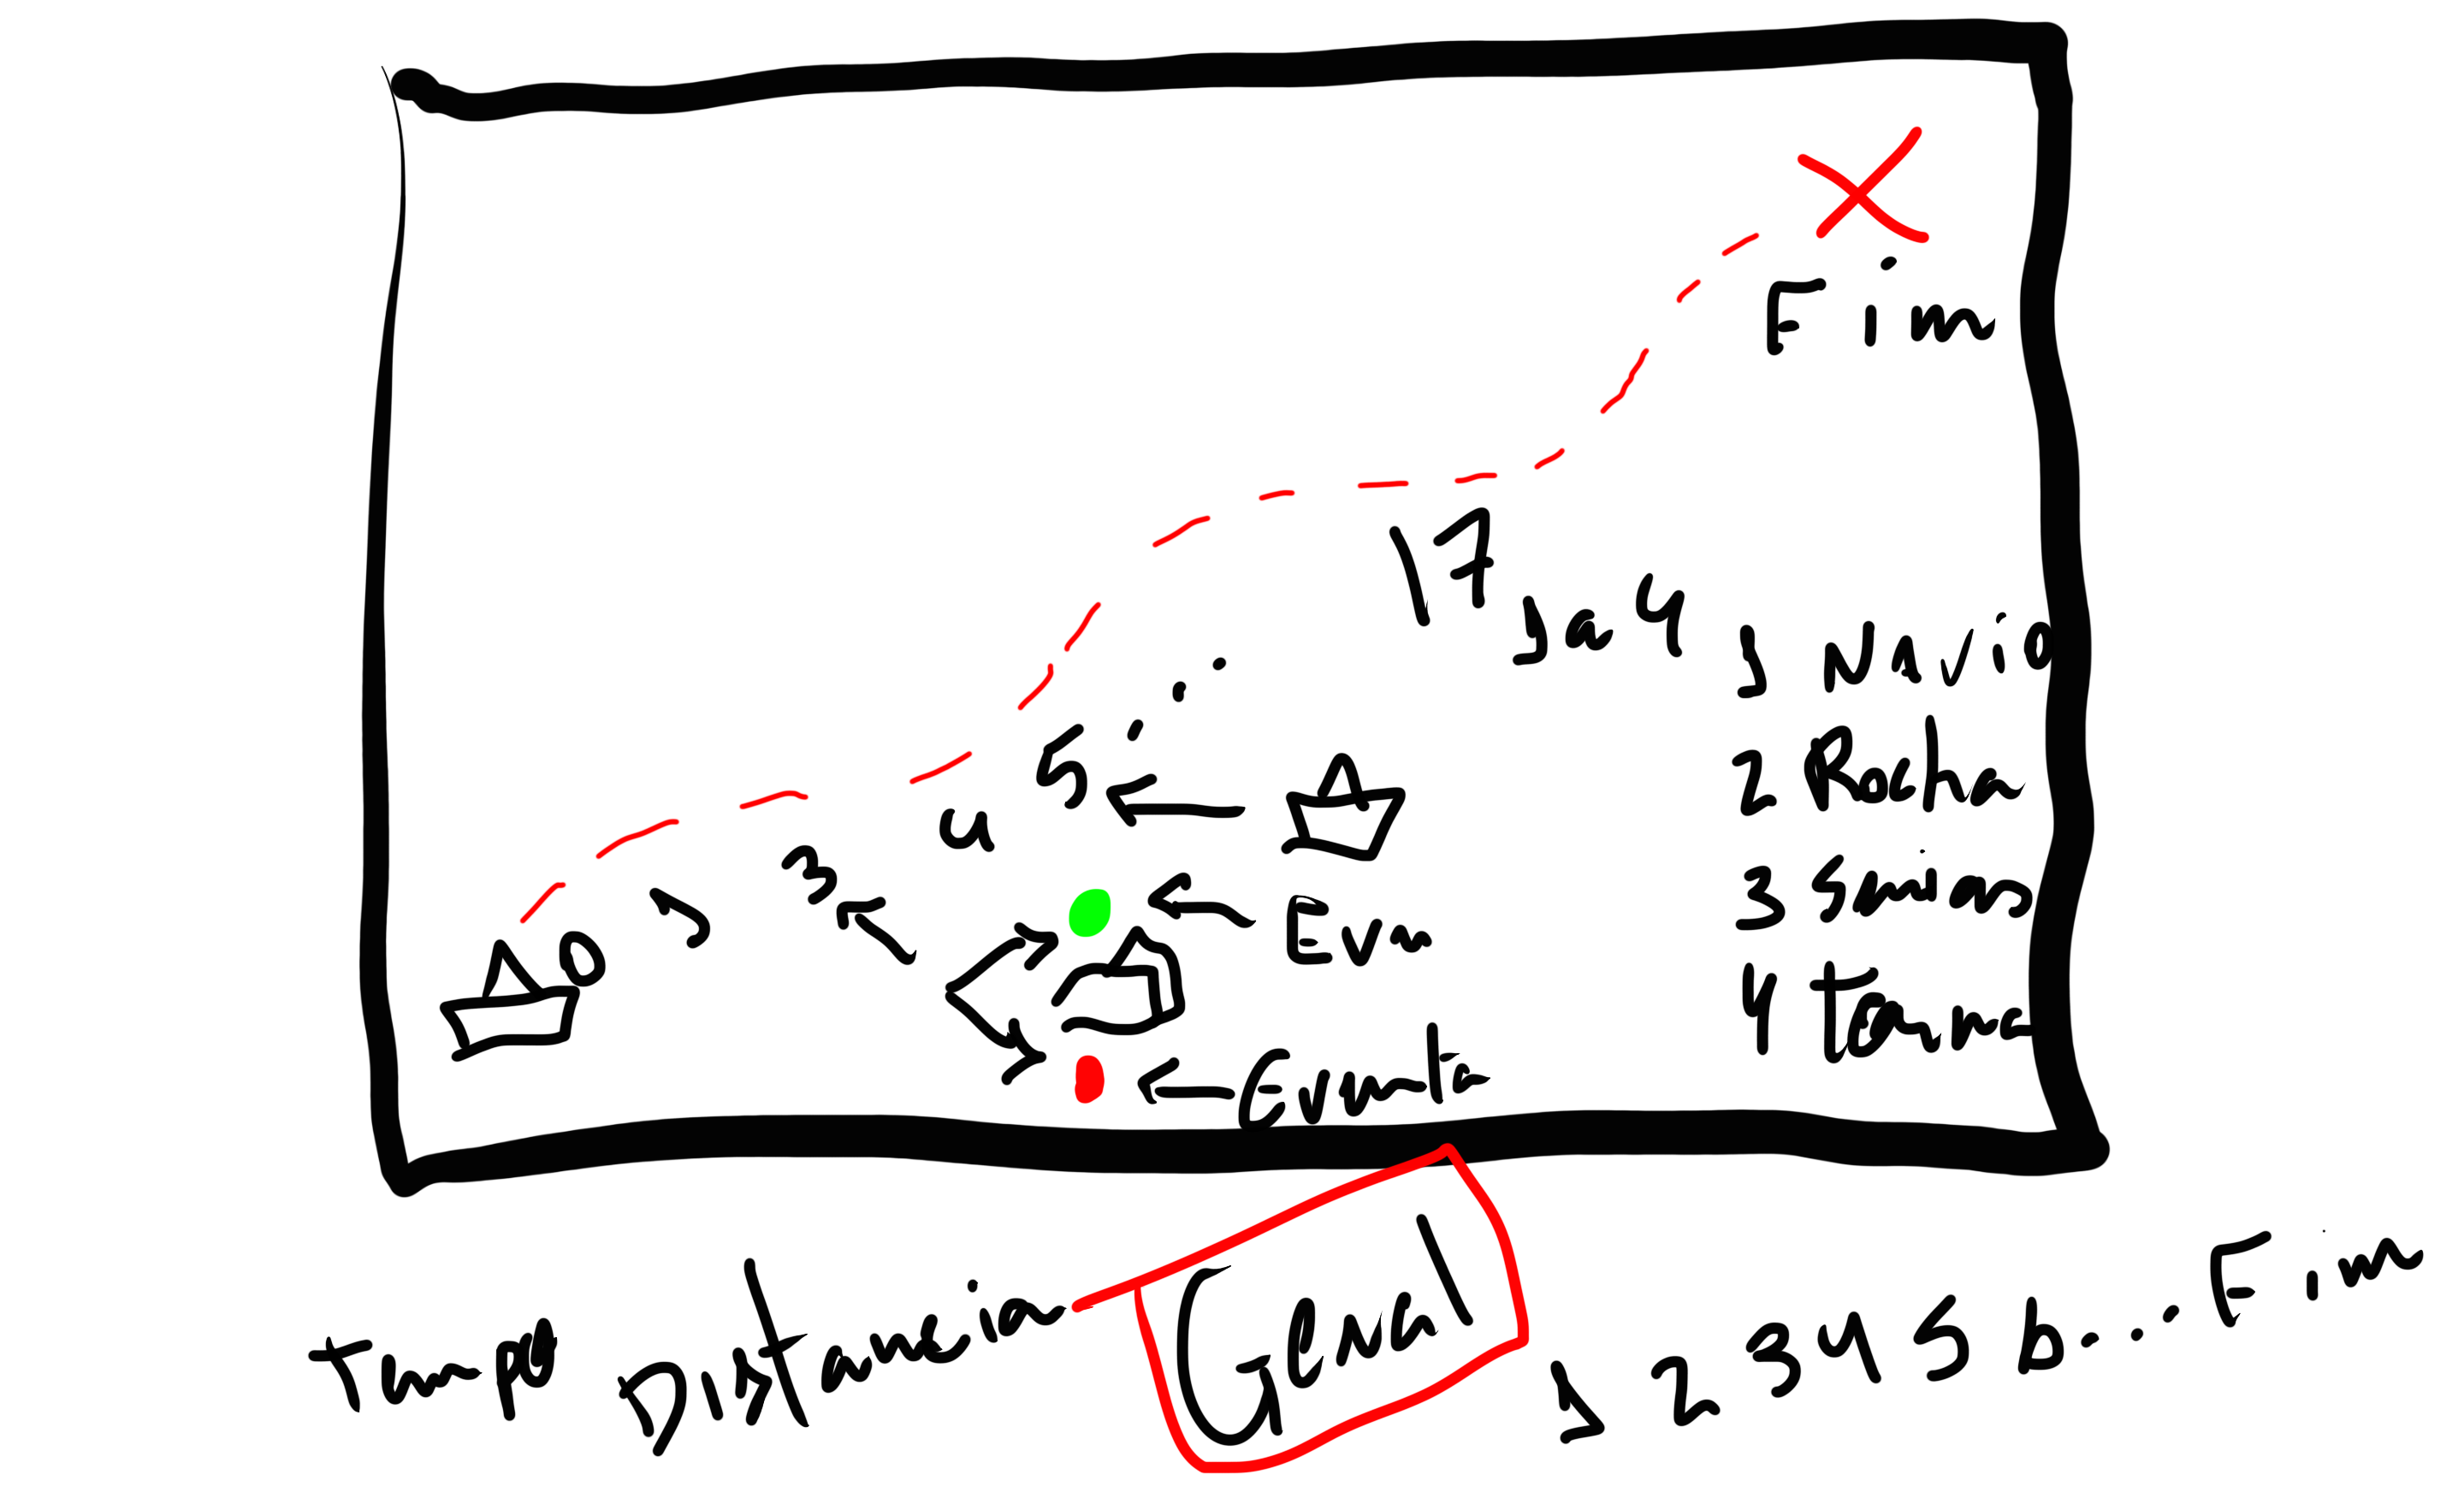 Fim
17
1 a 4
1 Navio
2 Rocha
3
4
0 1 3 4 5 ...
Evento
Tempo Distancia Geral 1 2 3 4 5 6 ... Fim